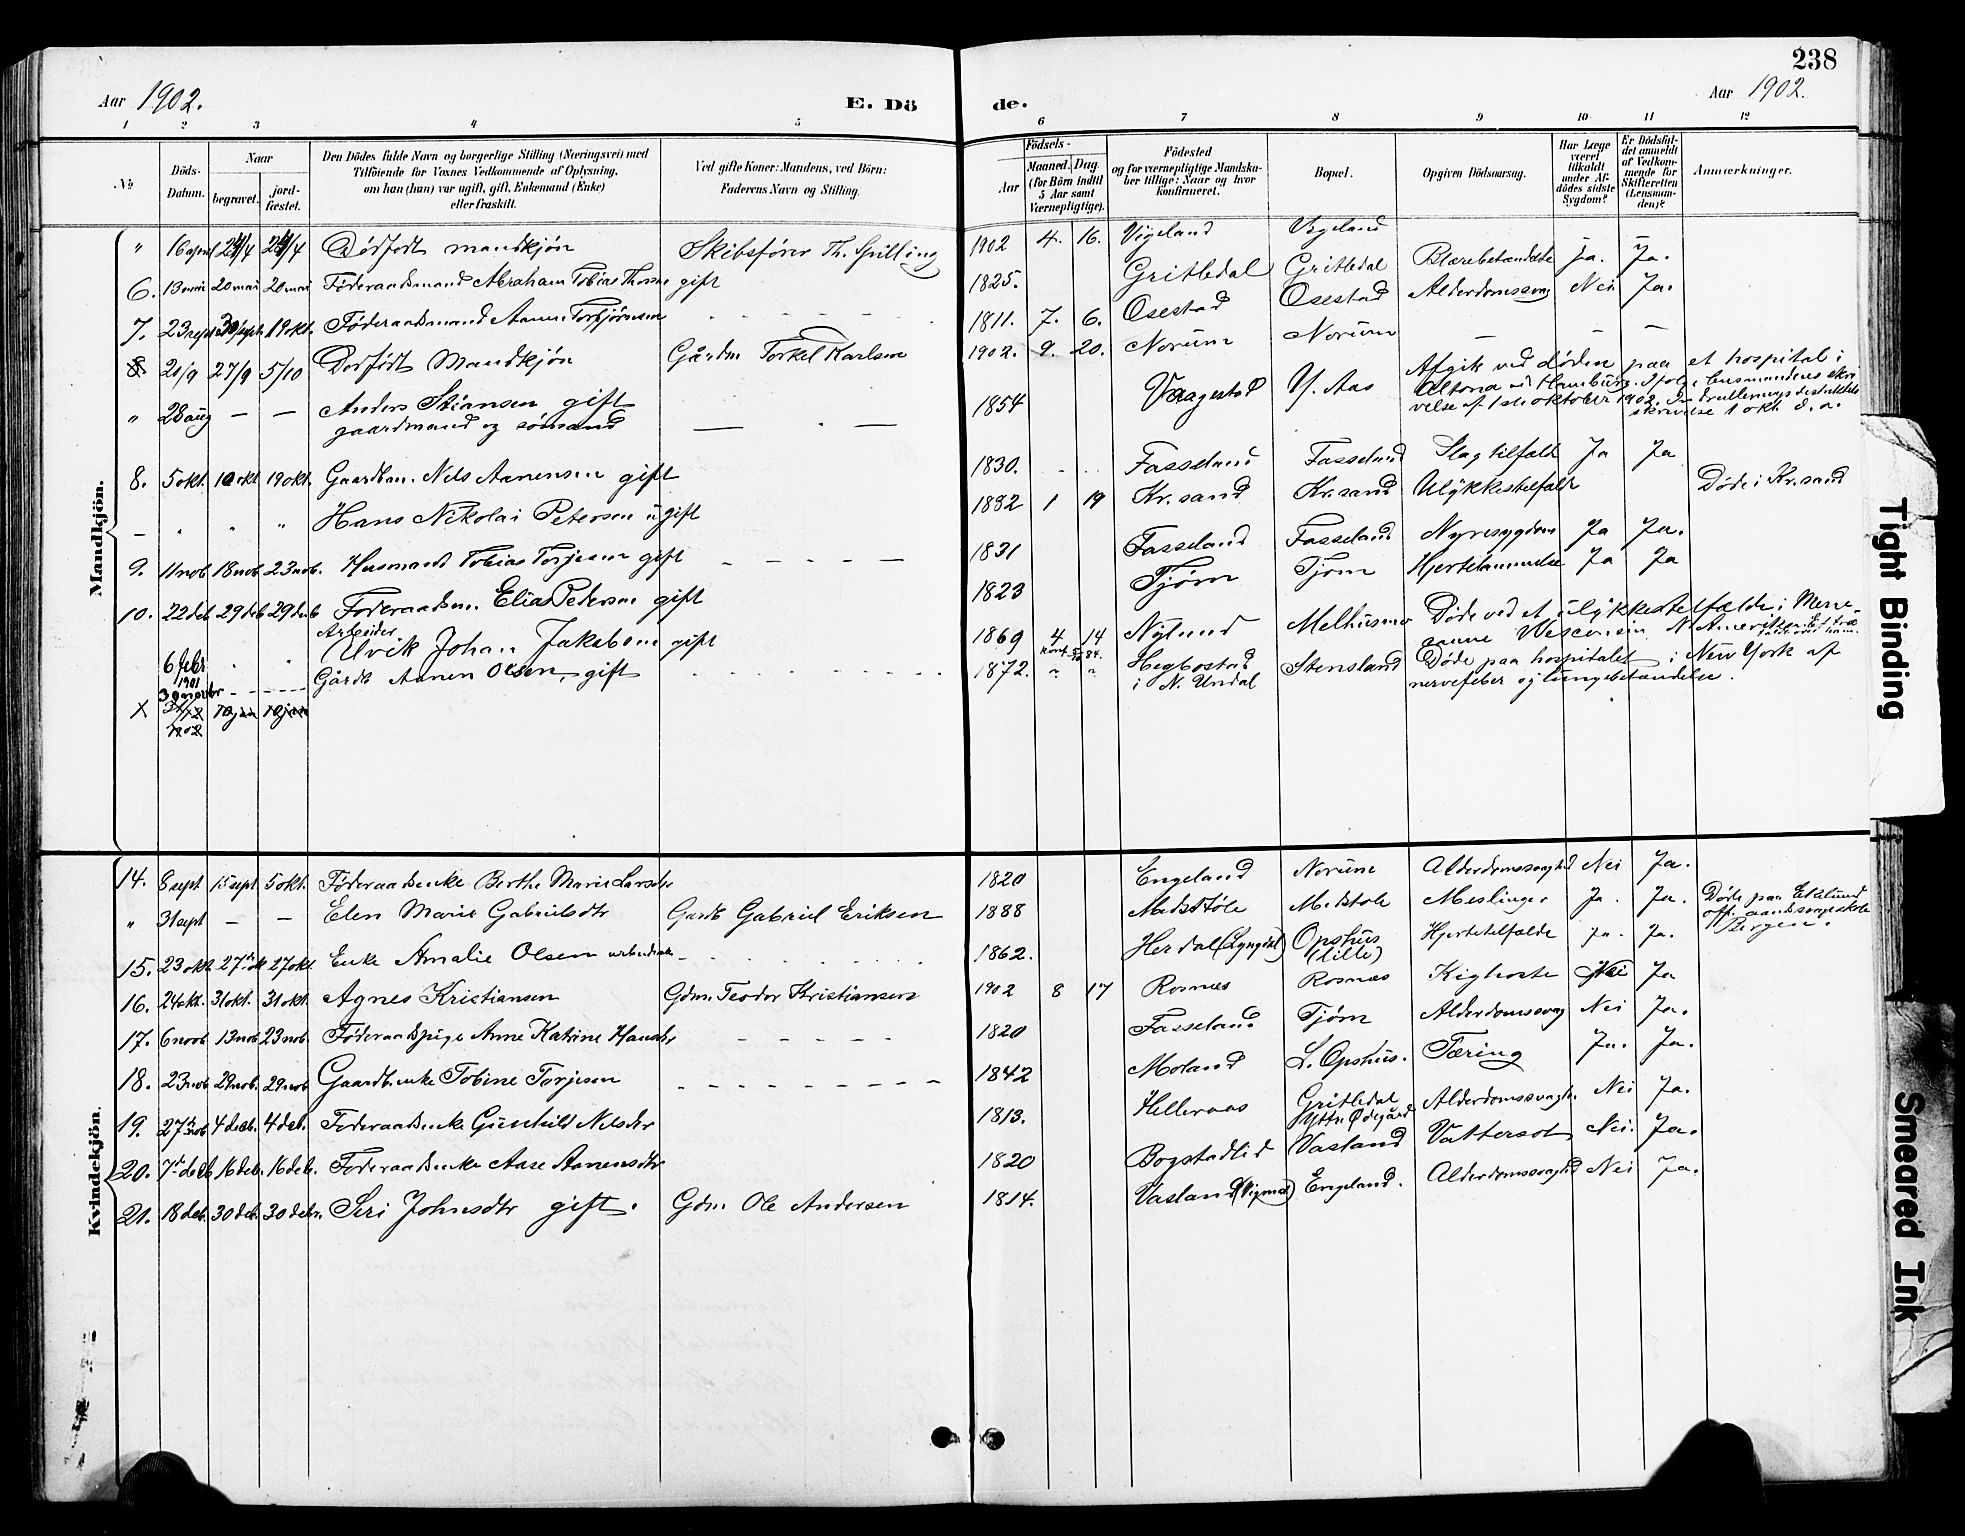 238
Aar 1902. E. Dö de. Aar 1902.
1 2 3 4 5 6 7 8 9 10 11 12
No Döds-Datum. Naar begravet. jord-fæstet. Den Dödes fulde Navn og borgerlige Stilling (Næringsvei) med Tilföiende for Voxnes Vedkommende af Oplysning, om han (hun) var ugift, gift, Enkemand (Enke) eller fraskilt. Ved gifte Koner: Mandens, ved Börn: Faderens Navn og Stilling. Födsels- Aar Maaned. Dag (for Börn indtil 5 Aar samt Værnepligtige). Födested og for værnepligtige Mandska-ber tillige: Naar og hvor konfirmeret. Bopæl. Opgiven Dödsaarsag. Har Læge været tilkaldt under Af-dödes sidste Sygdom? Er Dödsfal-det anmeldt af Vedkom-mende for Skifteretten (Lensman-den)? Anmærkninger.
Mandkjön.
" 16 april 24/4 24/4 Dødfødt mandkjøn Skibsfører Th. Spilling 1902 4. 16. Vigeland Vigeland – –
6. 13 mai 20 mai 20 mai Føderaadsmand Abraham Tobias Thorsen gift 1825. Gritledal Gritledal Blærebetændelse Ja. Ja.
7. 23 sept 30 sept. 19 okt. Føderaadsmand Aanen Torbjørnsen 1811. 7. 6. Osestad Osestad Alderdomssvag Nei Ja.
8. 20/9 27/9 5/10 Dødfødt Mandkjøn Gårdm Torkel Karlsen 1902. 9. 20. Norum Norum – – –
" 28 aug – – Anders Stiansen gift gaardmand og sømand 1854 Vaagestad Y. Aas Afgik ved døden paa et hospital i Altona ved Hamburg. Ifølge lensmandens skri velse af 1ste oktober 1902. skrivelse 1 okt. d. a.
8. 5 okt. 10 okt 19 okt. Gaardbm. Nels Aanensen gift 1830. Fasseland Fasseland Slagtilfælde Ja Ja
– " " " Hans Nikolai Petersen ugift 1882 1 19 Kr.sand Kr.sand Ulykkestilfælde Døde i Kr.sand
9. 11 nob 18 nob 23 nob. Husmand Tobias Torjesen gift 1831 Fasseland Fasseland Nyresygdom Ja Ja.
10. 22 deb 29 deb 29 deb Føderaadsm. Elias Pedersen gift 1823 Tjørn Tjørn Hjertelammelse Ja Ja
6 febr 1901 Arbeider Ulvik Johan Jakobsen gift 1869 4 14 Nylund Melhusmo Døde ved et ulykkestilfælde i Merre-sanne Wesconsin N. Amerika. Et træ faldt over ham.
Gårdb Aanen Olsen, gift 1872. " " Hegbostad i N. Undal Stensland Døde paa hospitalet i New York af nervefeber og lungebetændelse.
X 31/12 1902 10 jan 10 jan
Kvindekjön.
14. 8 sept 15 sept 5 okt. Føderaadsenke Berthe Marie Larsdtr 1820 Engeland Norum Alderdomssvaghd Nei Ja.
" 31 sept – – Elen Marie Gabrielsdtr Gårdb Gabriel Eriksen 1888 Medstøle Medstole Meslinger Ja. Ja. Døde paa Eklund off. aandssvageskole Bergen.
15. 23 okt 27 okt 27 okt Enke Amalie Olsen 1862. Herdal (Lyngdal) Opshus (lille) Hjertetilfælde Ja. Ja.
16. 24 okt. 31 okt. 31 okt. Agnes Kristiansen Gdm. Teodor Kristiansen 1902 8 17 Rosnes Rosnæs Kighoste Nei Ja
17. 6 noob 13 nob 23 nob. Føderaadspige Anne Katrine Hansdtr 1820 Fasseland Tjørn Alderdomssvag Nei Ja.
18. 23 nob 29 nob. 29 nob Gaardb.enke Tobine Torjesen 1842 Moland L. Opshus. Tæring Ja. Ja.
19. 27 nob 4 decb. 4 deb. Føderaadsenke Gunhild Nilsdtr 1813. Helleraas Gritledal Yttre Ødegård Alderdomssvagh. Nei Ja.
20. 7de decb 16 deb. 16 deb. Føderaadsenke Aase Aanensdtr 1820 Bogstadlid Vasland Vattersot Nei. Ja.
21. 18 deb. 30 deb. 30 debr. Siri Johnsdtr gift. Gdm. Ole Andersen 1814. Vasland (Vigmd) Engeland. Alderdomssvaghd Nei Ja.
Tight Binding
Smeared Ink